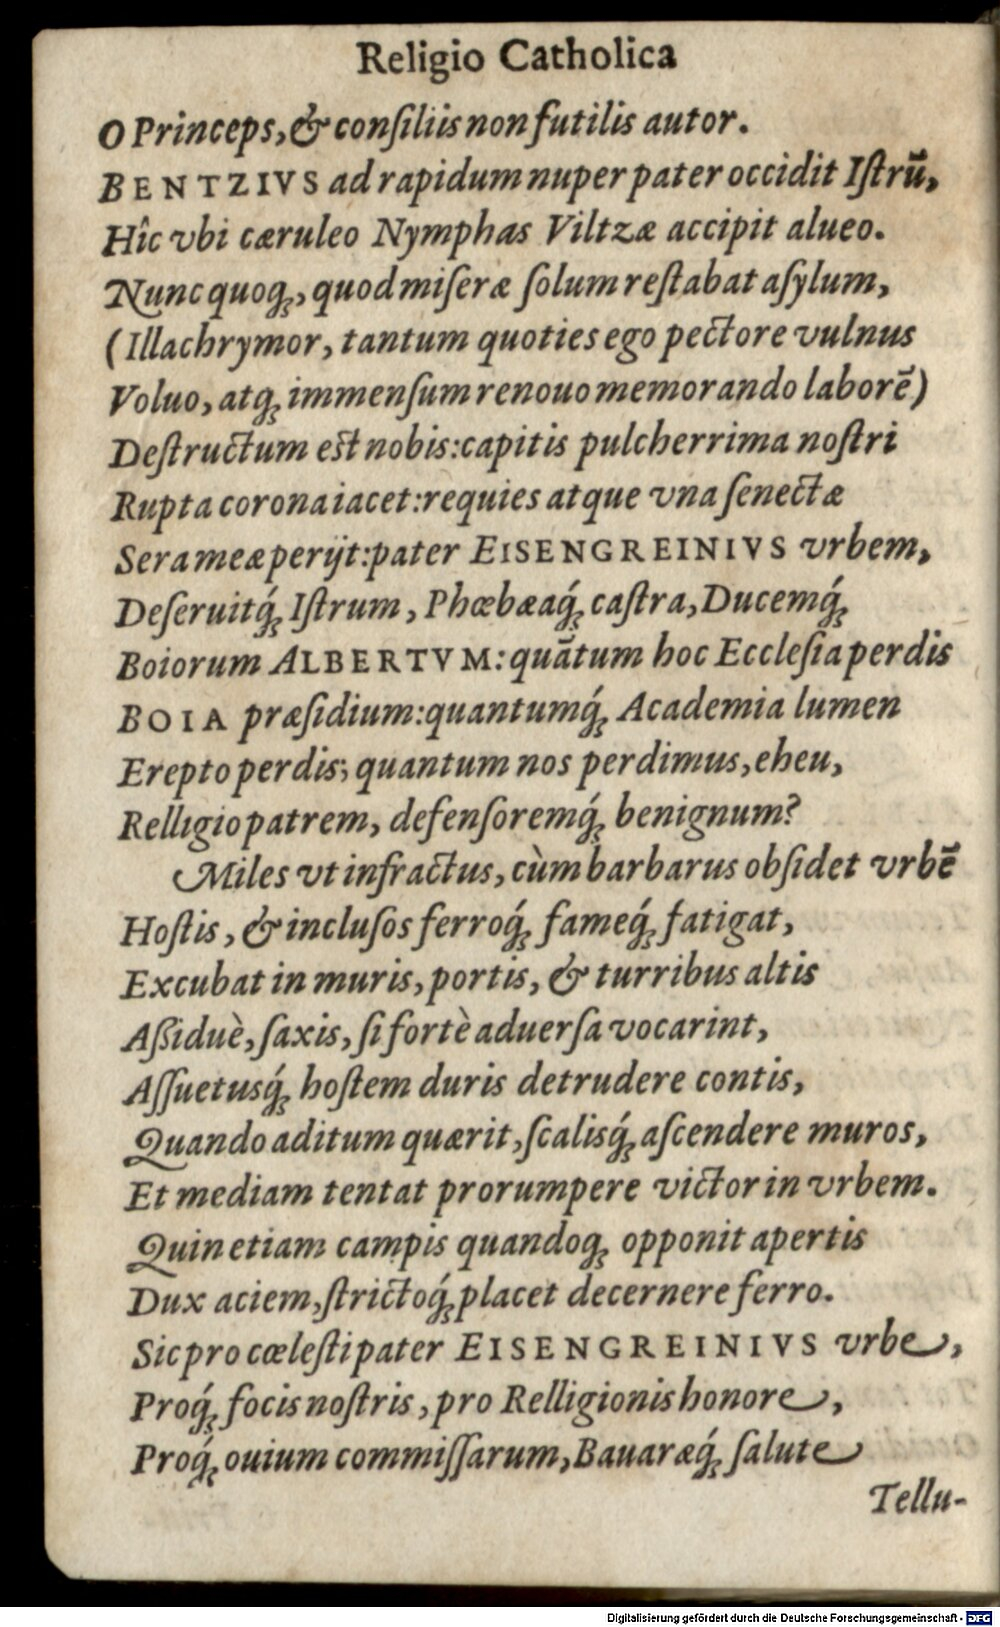 Religio Catholica
O Princeps, & consiliis non futilis autor.
BENTZIVS ad rapidum nuper pater occidit Istrū,
Hîc vbi cæruleo Nymphas Viltzæ accipit alueo.
Nunc quoq;, quod miseræ solum restabat asylum,
(Illachrymor, tantum quoties ego pectore vulnus
Voluo, atq; immensum renouo memorando laborē)
Destructum est nobis: capitis pulcherrima nostri
Rupta corona iacet: requies atque vna senectæ
Sera meæ perijt: pater EISENGREINIVS vrbem,
Deseruitq́; Istrum, Phœbæaq́; castra, Ducemq́;
Boiorum ALBERTVM: quātum hoc Ecclesia perdis
BOIA præsidium: quantumq́; Academia lumen
Erepto perdis; quantum nos perdimus, eheu,
Relligio patrem, defensoremq́; benignum?
Miles vt infractus, cùm barbarus obsidet vrbē
Hostis, & inclusos ferroq́; fameq́; fatigat,
Excubat in muris, portis, & turribus altis
Aßiduè, saxis, si fortè aduersa vocarint,
Assuetusq́; hostem duris detrudere contis,
Quando aditum quærit, scalisq́; ascendere muros,
Et mediam tentat prorumpere victor in vrbem.
Quin etiam campis quandoq; opponit apertis
Dux aciem, strictoq́; placet decernere ferro.
Sic pro cœlesti pater EISENGREINIVS vrbe,
Proq́; focis nostris, pro Relligionis honore,
Proq́; ouium commissarum, Bauaræq́; salute
Tellu-
Digitalisierung gefördert durch die Deutsche Forschungsgemeinschaft - DFG